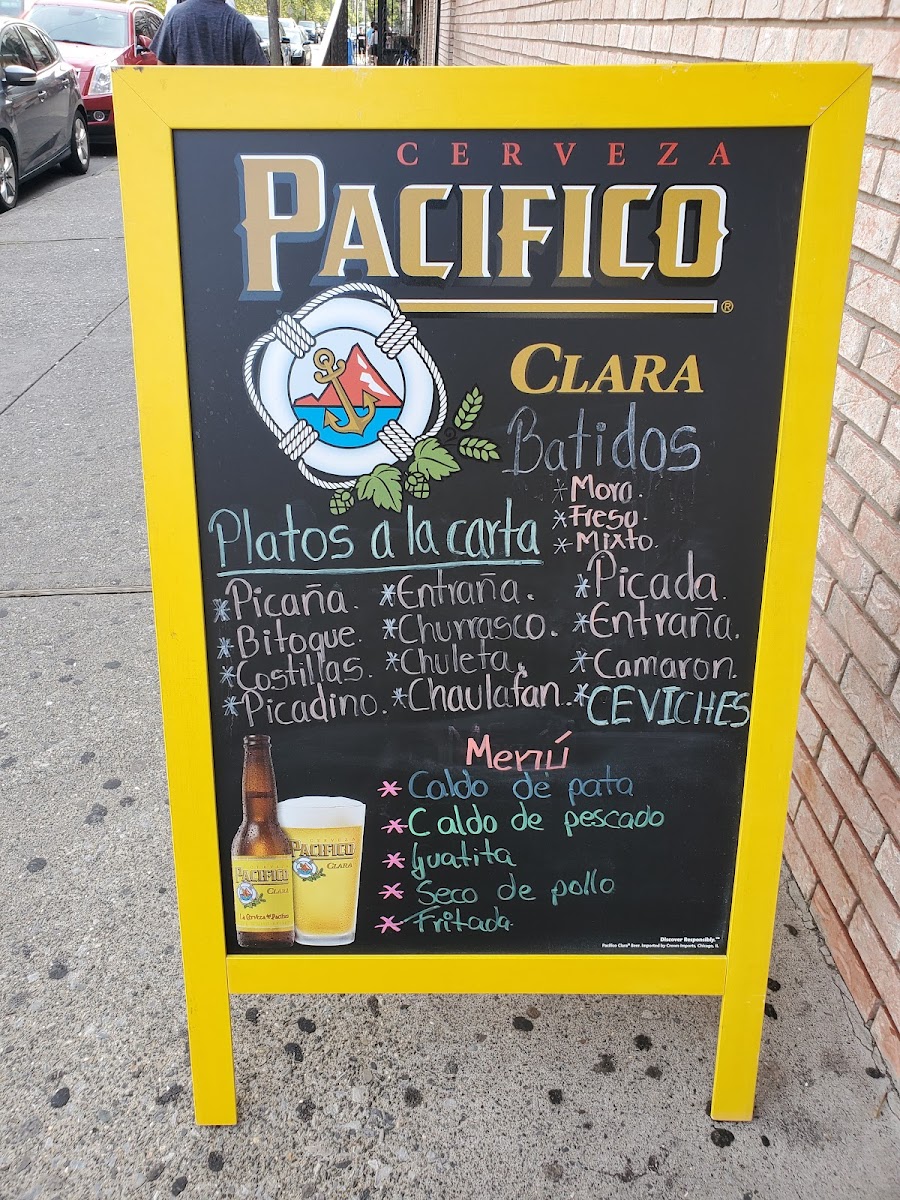 CERVEZA
PACIFICO
®
CLARA
Batidos
* Mora.
* Fresa.
* Mixto.
Platos a la carta
* Picaña.
* Bitoque.
* Costillas.
* Picadino.
* Entraña.
* Churrasco.
* Chuleta.
* Chaulafan.
* Picada.
* Entraña.
* Camaron.
* CEVICHES
Menú
* Caldo de pata
* Caldo de pescado
* Guatita
* Seco de pollo
* Fritada.
PACIFICO
CLARA
PACIFICO
CLARA
Discover Responsibly.™
Pacifico Clara® Beer. Imported by Crown Imports, Chicago, IL